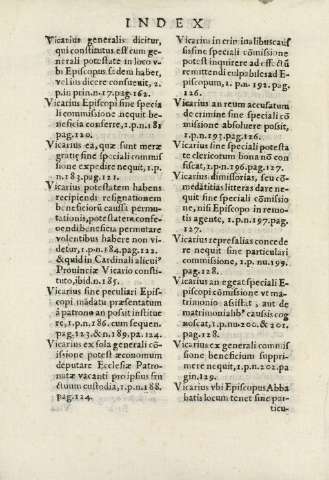 INDEX
Vicarius generalis dicitur,
qui constitutus est cum ge-
nerali potestate in loco v-
bi Episcopus sedem habet,
vel sic dicere consueuit, 2.
p. in prin. n. 17. pag. 162.
Vicarius Episcopi sine specia
li commissione nequit be-
neficia conferre, 1. p. n. 181
pag. 120.
Vicarius ea, quæ sunt meræ
gratiæ sine speciali commis
sione expedire nequit, 1. p.
n. 183. pag. 121.
Vicarius potestatem habens
recipiendi resignationem
beneficiorũ causa permu-
tationis, potestatem confe-
rendi beneficia permutare
volentibus habere non vi-
detur, 1. p. n. 184. pag. 122.
& quid in Cardinali alicui⁹
Prouinciæ Vicario consti-
tuto, ibid. n. 185.
Vicarius sine peculiari Epis-
copi mãdatu præsentatum
à patrono an possit institue
re, 1. p. n. 186. cum sequen.
pag. 123. & n. 189. pa. 124.
Vicarius ex sola generali cõ-
issione potest æconomum
deputare Ecclesiæ Patro-
natæ vacanti pro ipsius fru
ctuum custodia, 1. p. n. 188.
pag. 124.
Vicarius in criminalibus caus
sis sine speciali cõmissione
potest inquirere ad effectũ
remittendi culpabiles ad E-
piscopum, 1. p. n. 192. pag.
126.
Vicarius an reum accusatum
de crimine sine speciali cõ
missione absoluere possit,
1. p. n. 193. pag. 126.
Vicarius sine speciali potesta
te clericorum bona nõ con
fiscat, 1. p. n. 196. pag. 127.
Vicarius dimissorias, seu cõ-
medátitias litteras dare ne-
quit sine speciali cõmissio
ne, nisi Episcopo in remo-
tis agente, 1. p. n. 197. pag.
127.
Vicarius represalias concede
re nequit sine particulari
commissione, 1. p. nu. 199.
pag. 128.
Vicarius an egeat speciali E-
piscopi cõmissione vt ma-
trimonio assistat, aut de
matrimonialib⁹ caussis cog
noscat, 1. p. nu. 200. & 201.
pag. 128.
Vicarius ex generali commis
sione beneficium supprime-
re nequit, 1. p. n. 202. pa
gin. 129.
Vicarius vbi Episcopus Abba
batis locum tenet sine par-
ticu-